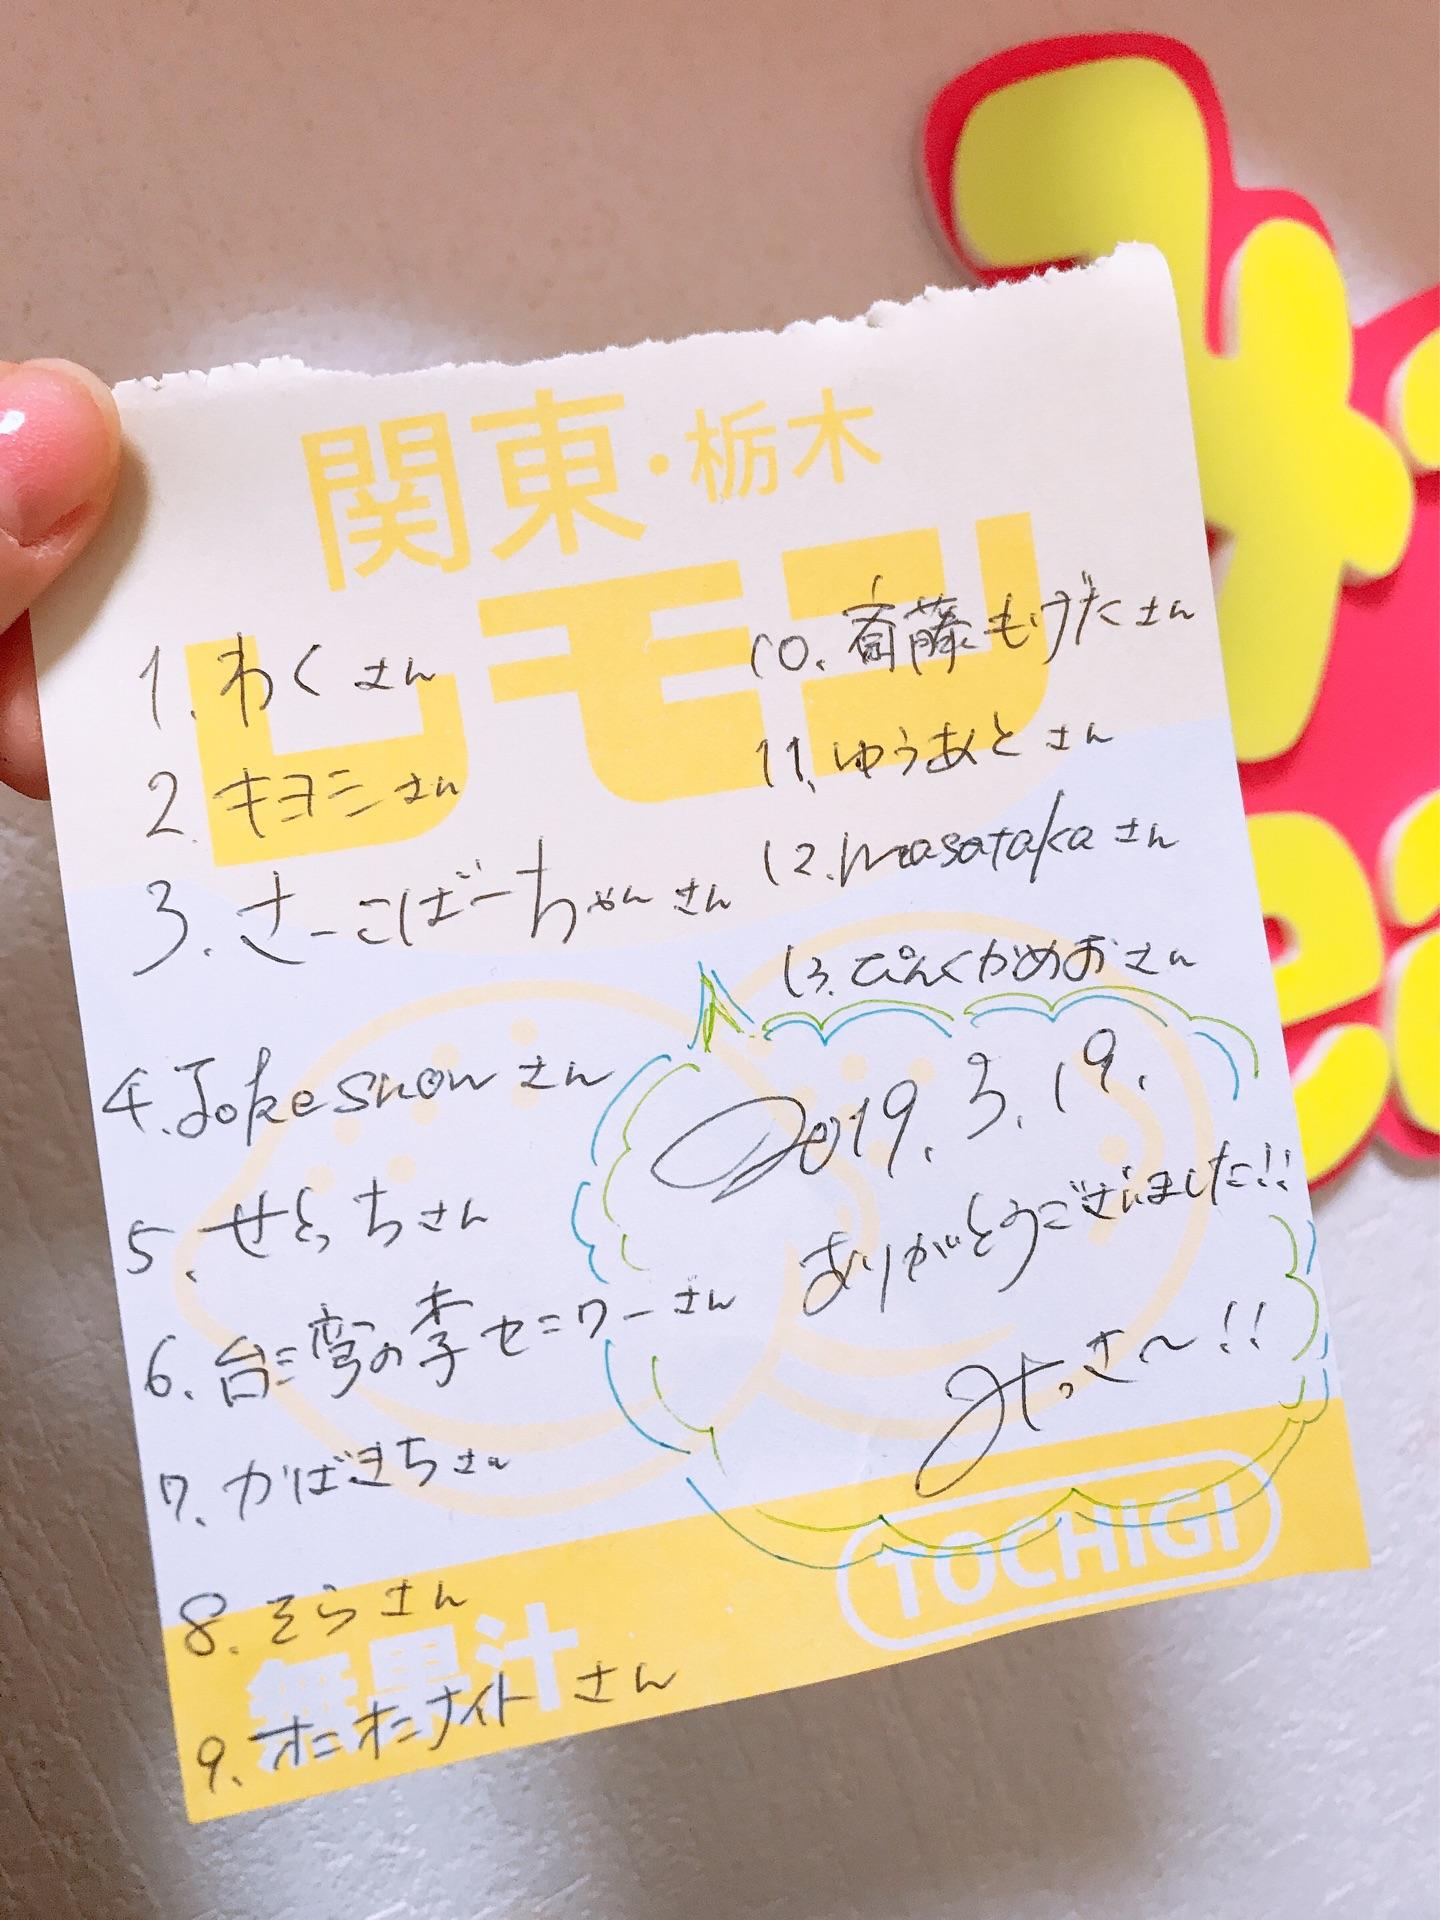 関東・栃木
レモン
1. わくさん
2. キヨシさん
3. さーこばーちゃんさん
4. Joke snowさん
5. せとっちさん
6. 台湾の李セニワーさん
7. かばきちさん
8. そらさん
9. オニオニナイトさん
10. 斎藤もげたさん
11. ゆうあとさん
12. masatakaさん
13. ぴんくかめおさん
2019.3.19.
ありがとうございました!!
みっき〜!!
TOCHIGI
無果汁
み